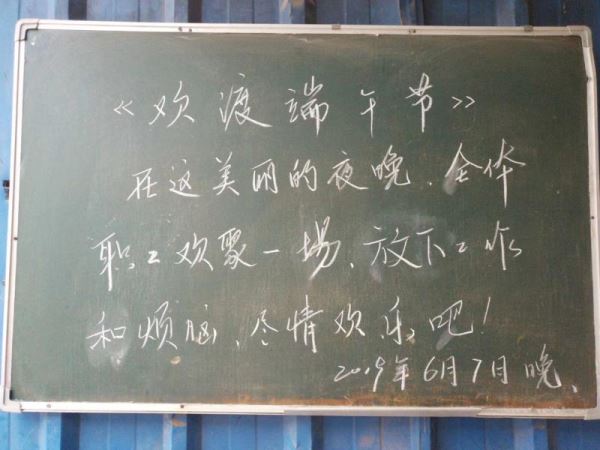 《欢渡端午节》
在这美丽的夜晚、全体
职工欢聚一場、放下工作
和烦脑、尽情欢乐吧！
2019年6月7日晚、